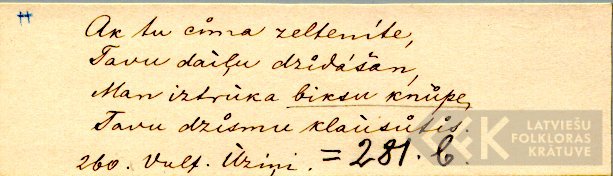 #
Ak tu cìma zelteníte,
Tavu dàiļu dzìdášan,
Man iztrûka biksu knûpe,
Tavu dzìsmu klàusûtìs.
260. Vulf. Ùziņi. = 281. b.
LATVIEŠU
FOLKLORAS
KRĀTUVE